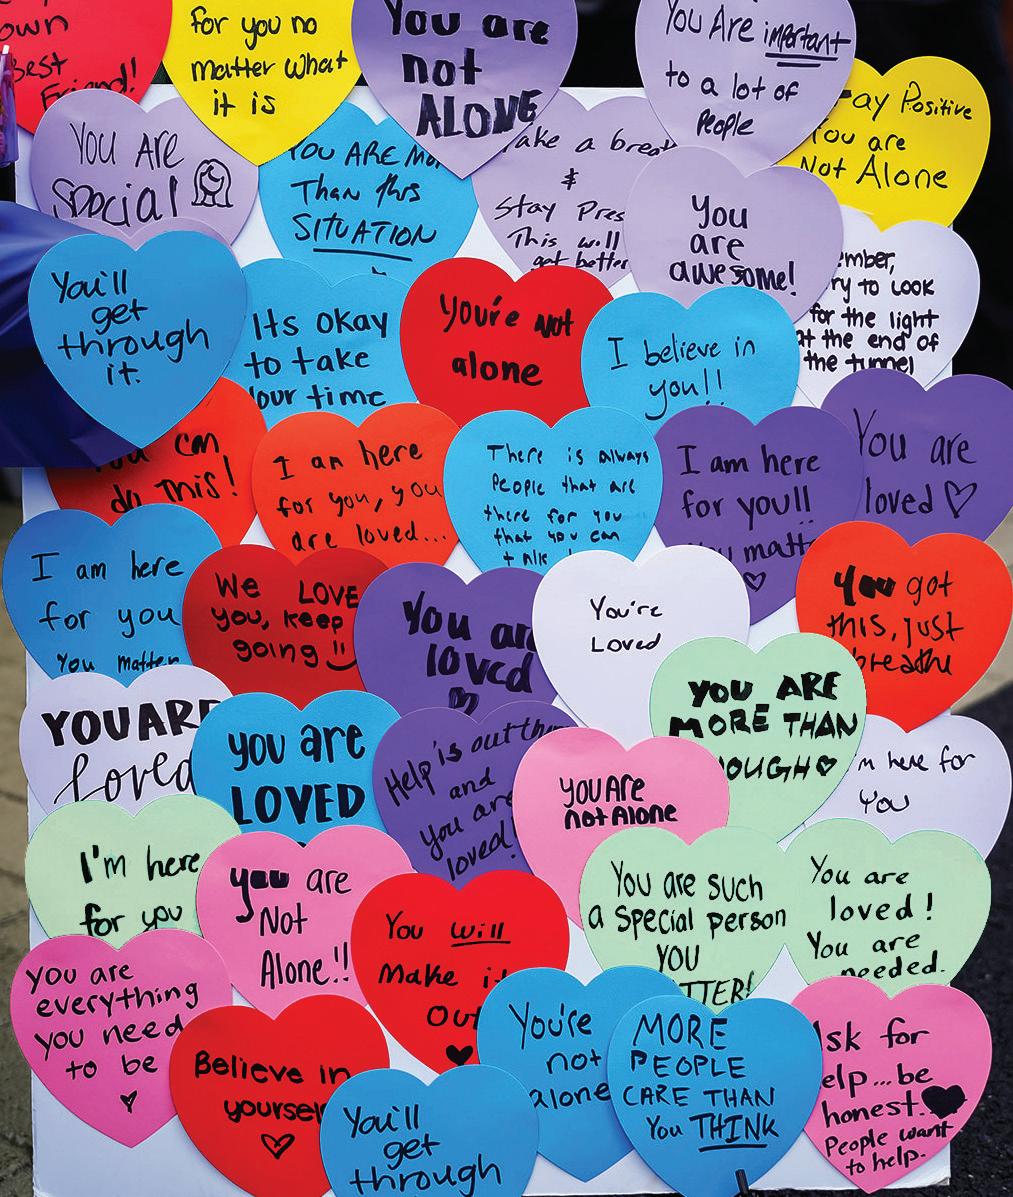 own
Best
Friend!
for you no
matter what
it is
You are
not
ALONE
You Are important
to a lot of
People
ay Positive
You are
Not Alone
You Are
Special
YOU ARE Mo
Than this
SITUATION
ake a breat
&
Stay Pres
This will
get better
You
are
awesome!
ember,
ry to Look
for the light
at the end of
the tunnel
You'll
get
through
it.
Its okay
to take
our time
You're not
alone
I believe in
you!!
You can
do this!
I am here
for you, you
are loved...
There is always
People that are
there for you
that you can
talk
I am here
for you!!
You matt
You are
loved
I am here
for you
You matter
We LOVE
you, keep
going!!
You are
loved
You're
Loved
You got
this, just
breathe
YOU ARE
MORE THAN
OUGH
YOU ARE
Loved
you are
LOVED
Help is out the
and
you are
loved!
YOU ARE
not Alone
m here for
You
I'm here
for you
you are
Not
Alone!!
You will
Make it
Out
You are such
a Special person
YOU
TTER!
You are
loved!
You are
needed.
You are
everything
you need
to be
Believe in
yourself
You'll
get
through
You're
not
alone
MORE
PEOPLE
CARE THAN
You THINK
Ask for
elp...be
honest.
People want
to help.